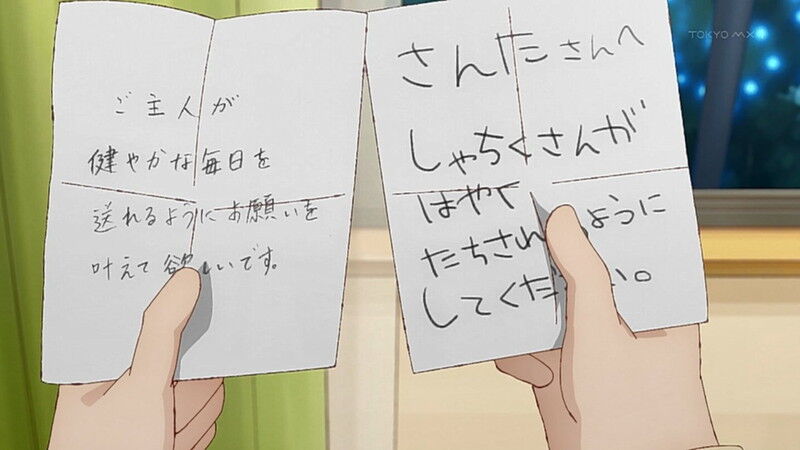 ご主人が
健やかな毎日を
送れるようにお願いを
叶えて欲しいです。
さんたさんへ
しゃちくさんが
はやく
たちされるように
してください。
TOKYO MX